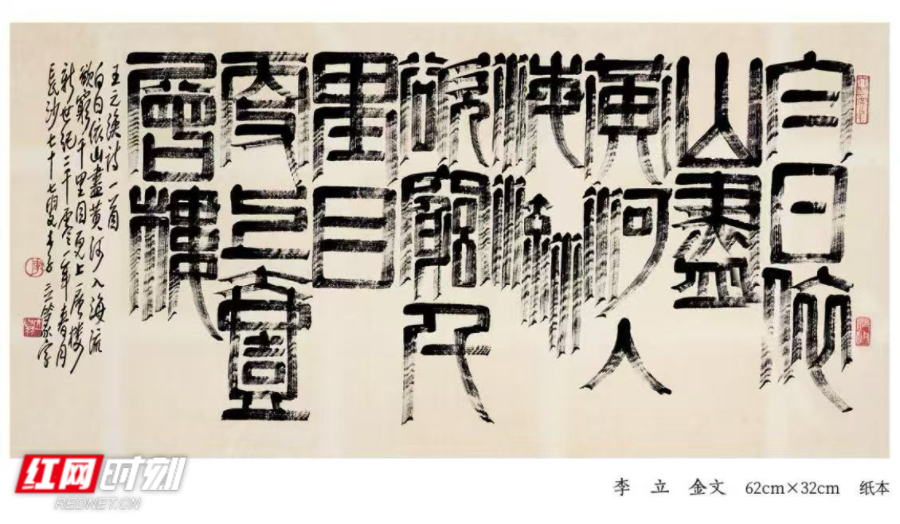 白日依
山盡
黄河入
海流
欲窮千
里目
更上壹
層樓
王之渙诗一首
白日依山盡黄河入海流
欲窮千里目更上一层楼
新世紀二千零一年春月
長沙七十七叟李立篆字
红网时刻
REDNET.CN
李 立 金文 62cm×32cm 纸本